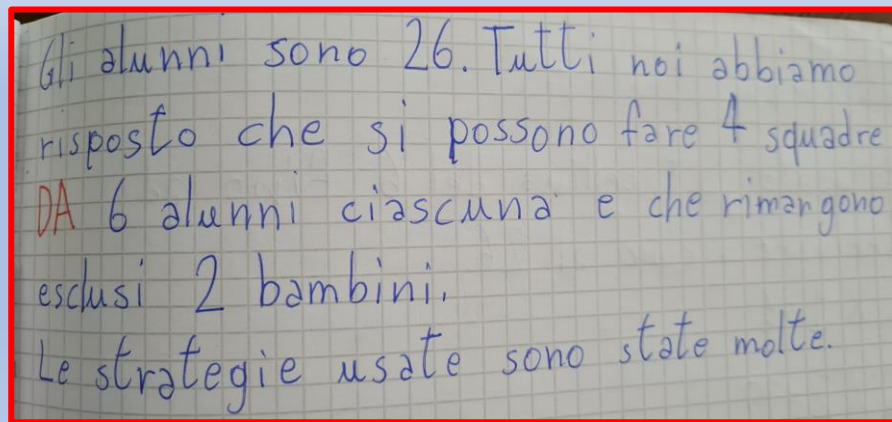 Gli alunni sono 26. Tutti noi abbiamo
risposto che si possono fare 4 squadre
DA 6 alunni ciascuna e che rimangono
esclusi 2 bambini.
Le strategie usate sono state molte.